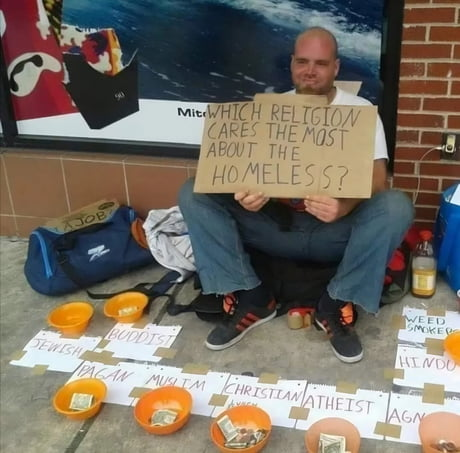 90
Mit
WHICH RELIGION
CARES THE MOST
ABOUT THE
HOMELESS?
A JOB
JEWISH
BUDDIST
PAGAN
MUSLIM
CHRISTIAN
ATHEIST
AGN
HINDU
WEED
SMOKERS